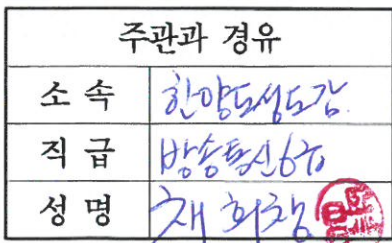 주관과 경유
소 속 한양도성도감
직 급 방송통신6급
성 명 채희창